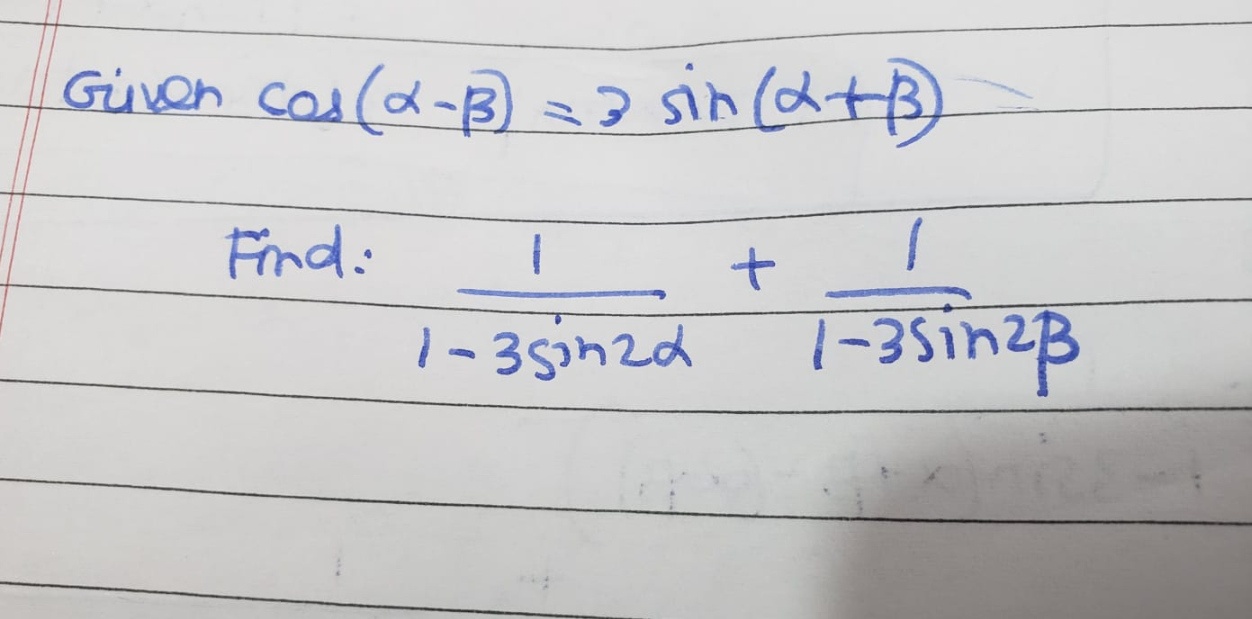 Given cos(α-β) = 3 sin(α+β)
Find: 1/(1-3sin2α) + 1/(1-3sin2β)